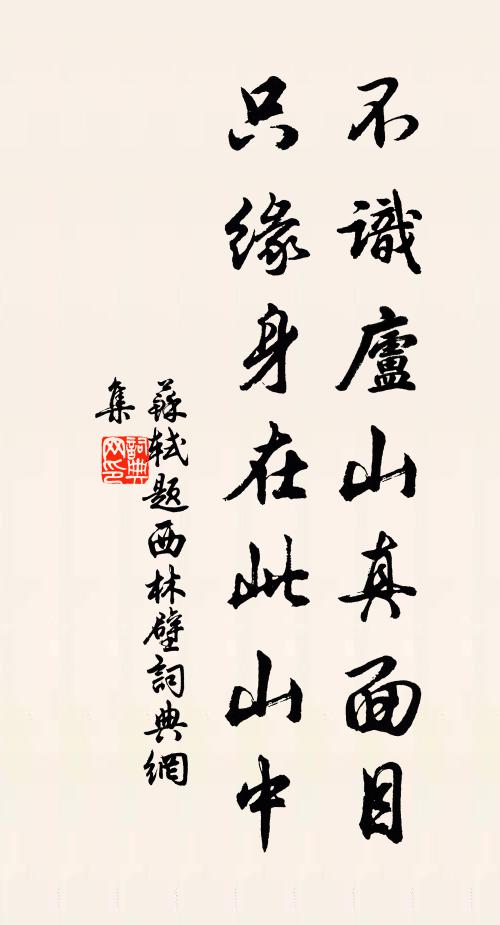 不識廬山真面目
只緣身在此山中
蘇軾題西林壁詞典網
集
詞典網印